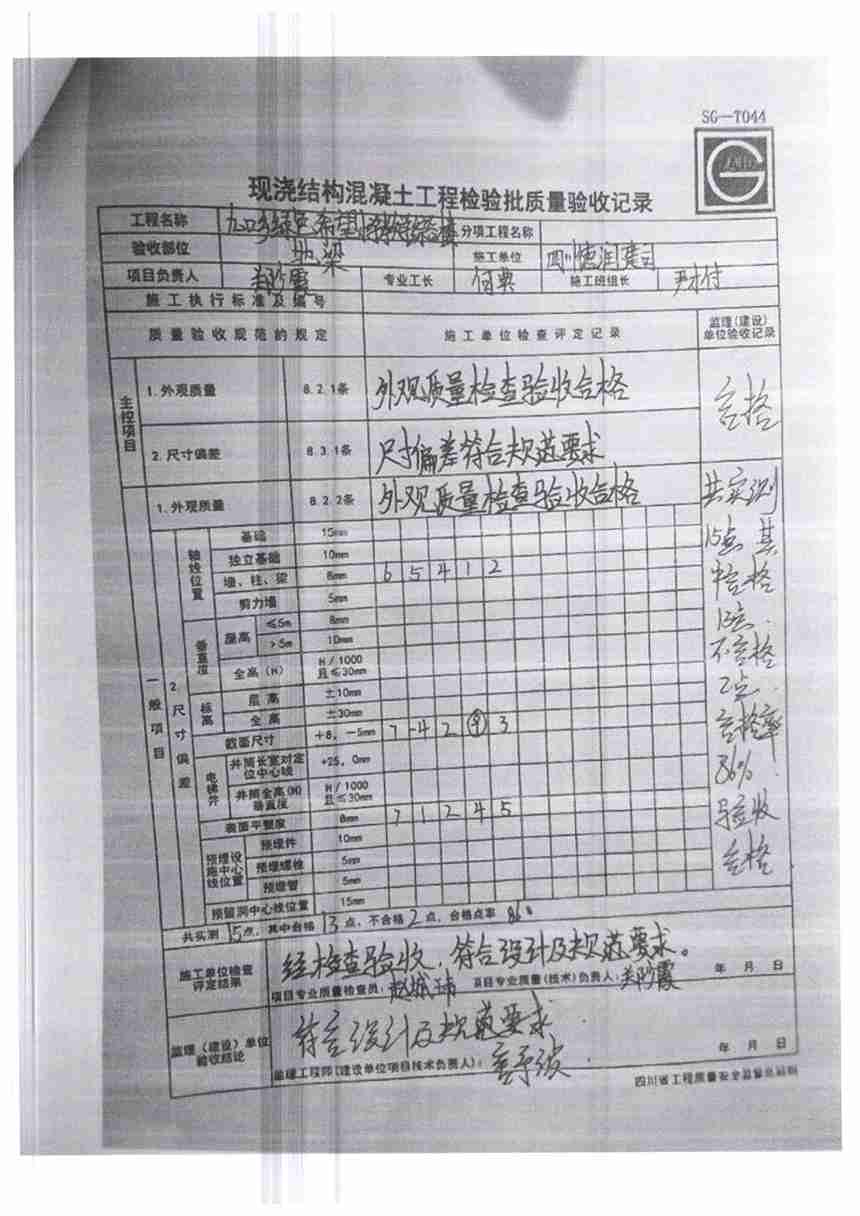 SG—T044
现浇结构混凝土工程检验批质量验收记录
工程名称 九口乡绿色希望 分项工程名称
验收部位 地梁 施工单位 四川德润建司
项目负责人 专业工长 施工班组长
施工执行标准及编号
质量验收规范的规定 施工单位检查评定记录 监理(建设)单位验收记录
主控项目
1.外观质量 8.2.1条 外观质量检查验收合格 合格
2.尺寸偏差 8.3.1条 尺寸偏差符合规范要求
一般项目
1.外观质量 8.2.2条 外观质量检查验收合格 共实测15点 其中合格13点. 不合格2点. 合格率86%. 验收合格
2.尺寸偏差
轴线位置 基础 15mm
独立基础 10mm
墙、柱、梁 8mm 6 5 4 1 2
剪力墙 5mm
垂直度 层高 ≤5m 8mm
>5m 10mm
全高(H) H/1000且≤30mm
标高 层高 ±10mm
全高 ±30mm
截面尺寸 +8,-5mm 7 -4 2 3
电梯井 井筒长宽对定位中心线 +25,0mm
井筒全高(H)垂直度 H/1000且≤30mm
表面平整度 8mm 7 1 2 4 5
预埋设施中心线位置 预埋件 10mm
预埋螺栓 5mm
预埋管 5mm
预留洞中心线位置 15mm
共实测 15点,其中合格 13点,不合格 2点,合格点率 86%
施工单位检查评定结果 经检查验收,符合设计及规范要求。
项目专业质量检查员: 项目专业质量(技术)负责人: 年 月 日
监理(建设)单位验收结论 符合设计及规范要求
监理工程师(建设单位项目技术负责人): 年 月 日
四川省工程质量安全监督总站制